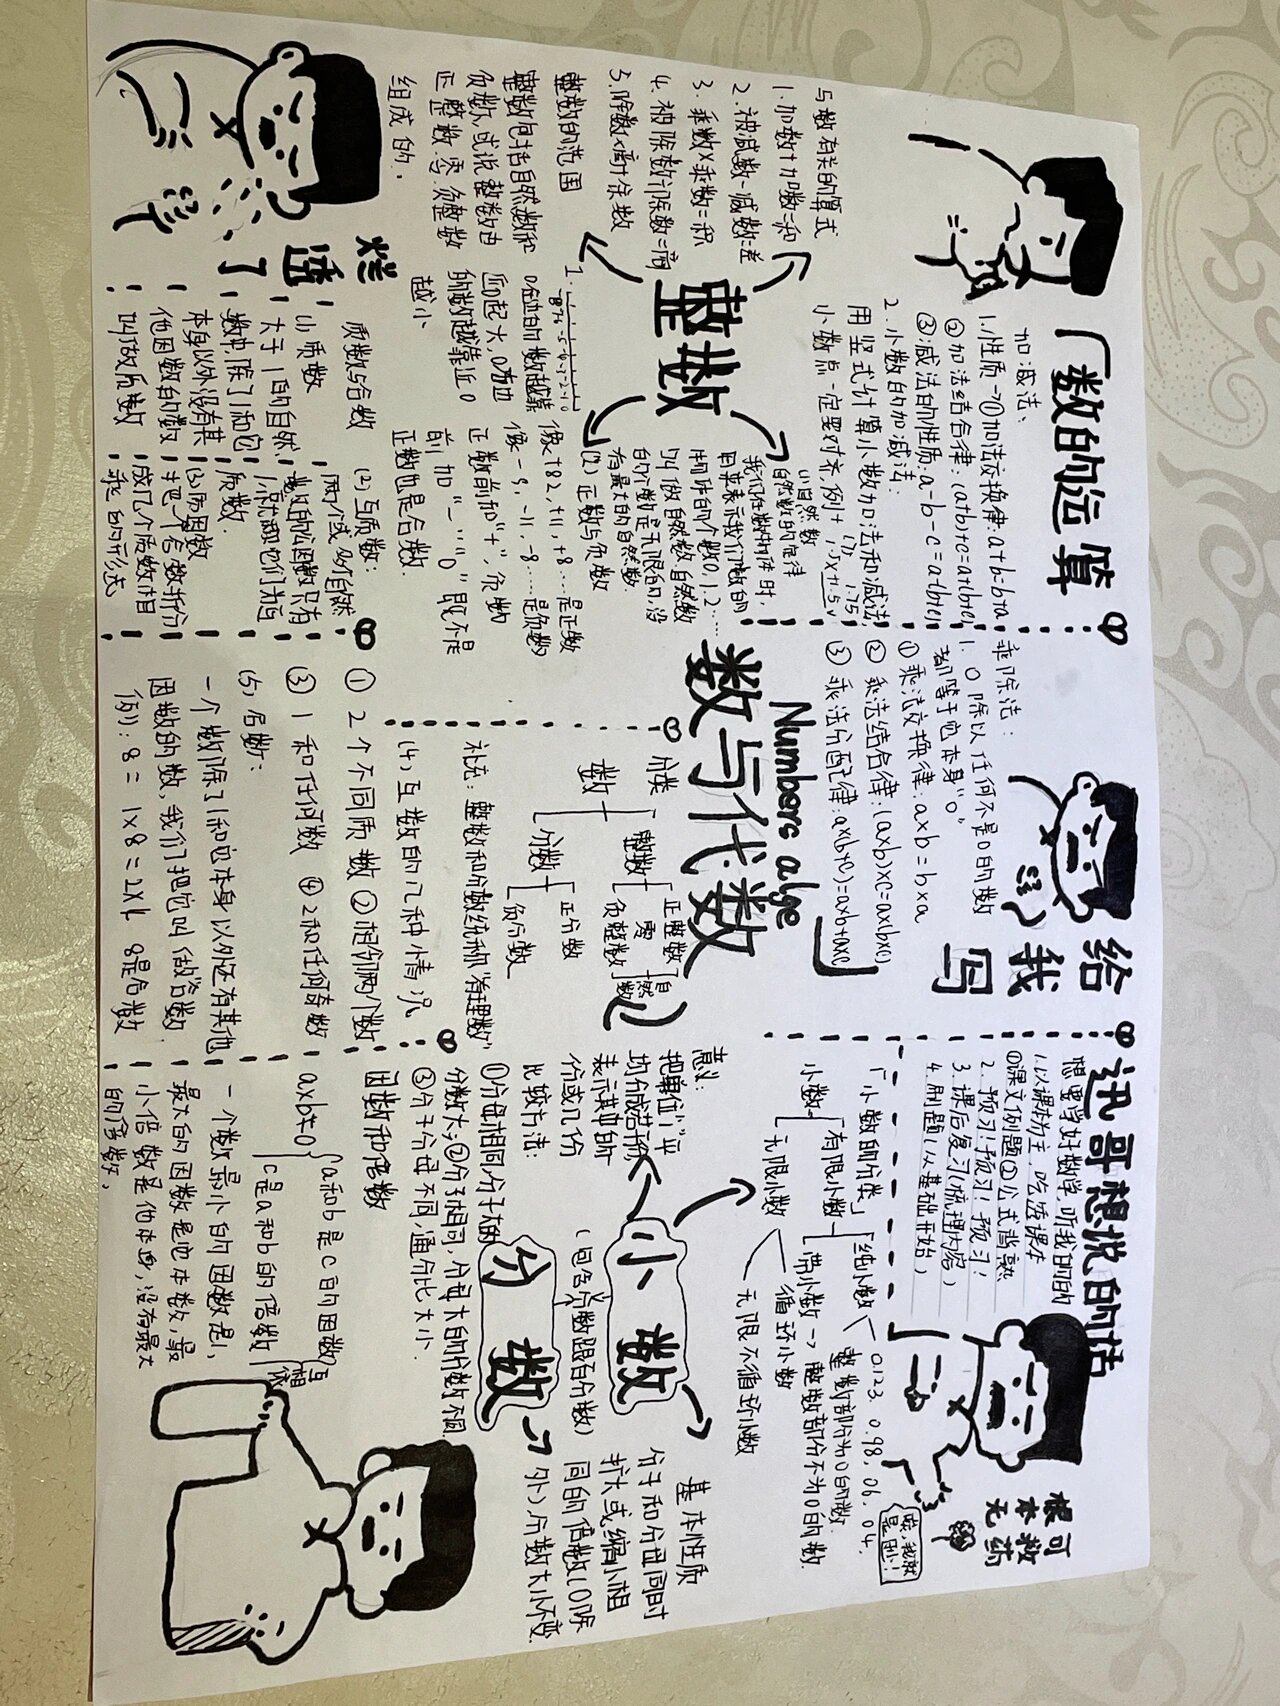 「数的运算
加减法:
1.性质→①加法交换律:a+b=b+a
②加法结合律:(a+b)+c=a+(b+c)
③减法的性质:a-b-c=a-(b+c)
2.小数的加减法:
用竖式计算小数加法和减法,
小数点一定要对齐,例
与数有关的算式
1.加数+加数=和
2.被减数-减数=差
3.乘数×乘数=积
4.被除数÷除数=商
5.除数×商+余数
整数
整数的范围
整数包括自然数和
负数,或说整数由
正整数.零.负整数
组成的.
(1)自然数
自然数的定律
我们在数物体时,
用来表示我们数的
物体的个数0,1,2……
叫做自然数,自然数
的个数是无限的,没
有最大的自然数.
(2)正数与负数
像+82,+11,+8……是正数
像-5,-11,-8……是负数
正数前加“+”,负数
前加“-”“0”既不是
正数也是负数.
1.
的数越靠近0
越小
烂透了
质数与合数
(1)质数
大于1的自然
数中,除了1和它
本身以外没有其
他因数的数
叫做质数
(2)互质数:
两个或多个自然
数的公因数只有
1,就把它们为互
质数
(3)质因数
把一个合数拆分
成几个质数相
乘的形式
给我写
乘除法:
1.0除以任何不是0的数
都等于它本身“0”
①乘法交换律:a×b=b×a
②乘法结合律:(a×b)×c=a×(b×c)
③乘法分配律:a×(b+c)=a×b+a×c
Numbers alge
数与代数
分类
数
整数
正整数
零
负整数
自然数
分数
正分数
负分数
补充:整数和分数统称“有理数”
(4)互数的几种情况
①2个不同质数 ②相邻两个数
③1和任何数 ④2和任何奇数
(5)合数:
一个数除了1和它本身以外还有其他
因数的数,我们把它叫做“合数”
例:8=1×8=2×4 8是合数
迅哥想说的话
想要学好数学,听我的
1.以课本为主,吃透课本
①课文例题②公式背熟
2.预习!预习!预习!
3.课后复习(梳理内容)
4.刷题(以基础开始)
可数药
根本无
「小数的分类」
小数
有限小数
无限小数
纯小数
0.123,0.98,0.6,0.4,
整数部分为0的数.
带小数→整数部分不为0的数.
循环小数
无限不循环小数
小数
(包含分数跟百分数)
分数
意义:
把单位“1”平
均分成若干份
表示其中的一
份或几份
比较方法:
①分母相同,分子大的
分数大;②分子相同,分母大的分数小
③分子分母不同,通分比大小.
基本性质
分子和分母同时
扩大或缩小相
同的倍数(0除
外),分数大小不变.
因数和倍数
a×b≠0
a和b是c的因数
c是a和b的倍数
互相依
一个数最小的因数是1,
最大的因数是他本数,最
小倍数是他本身,没有最大
的倍数,